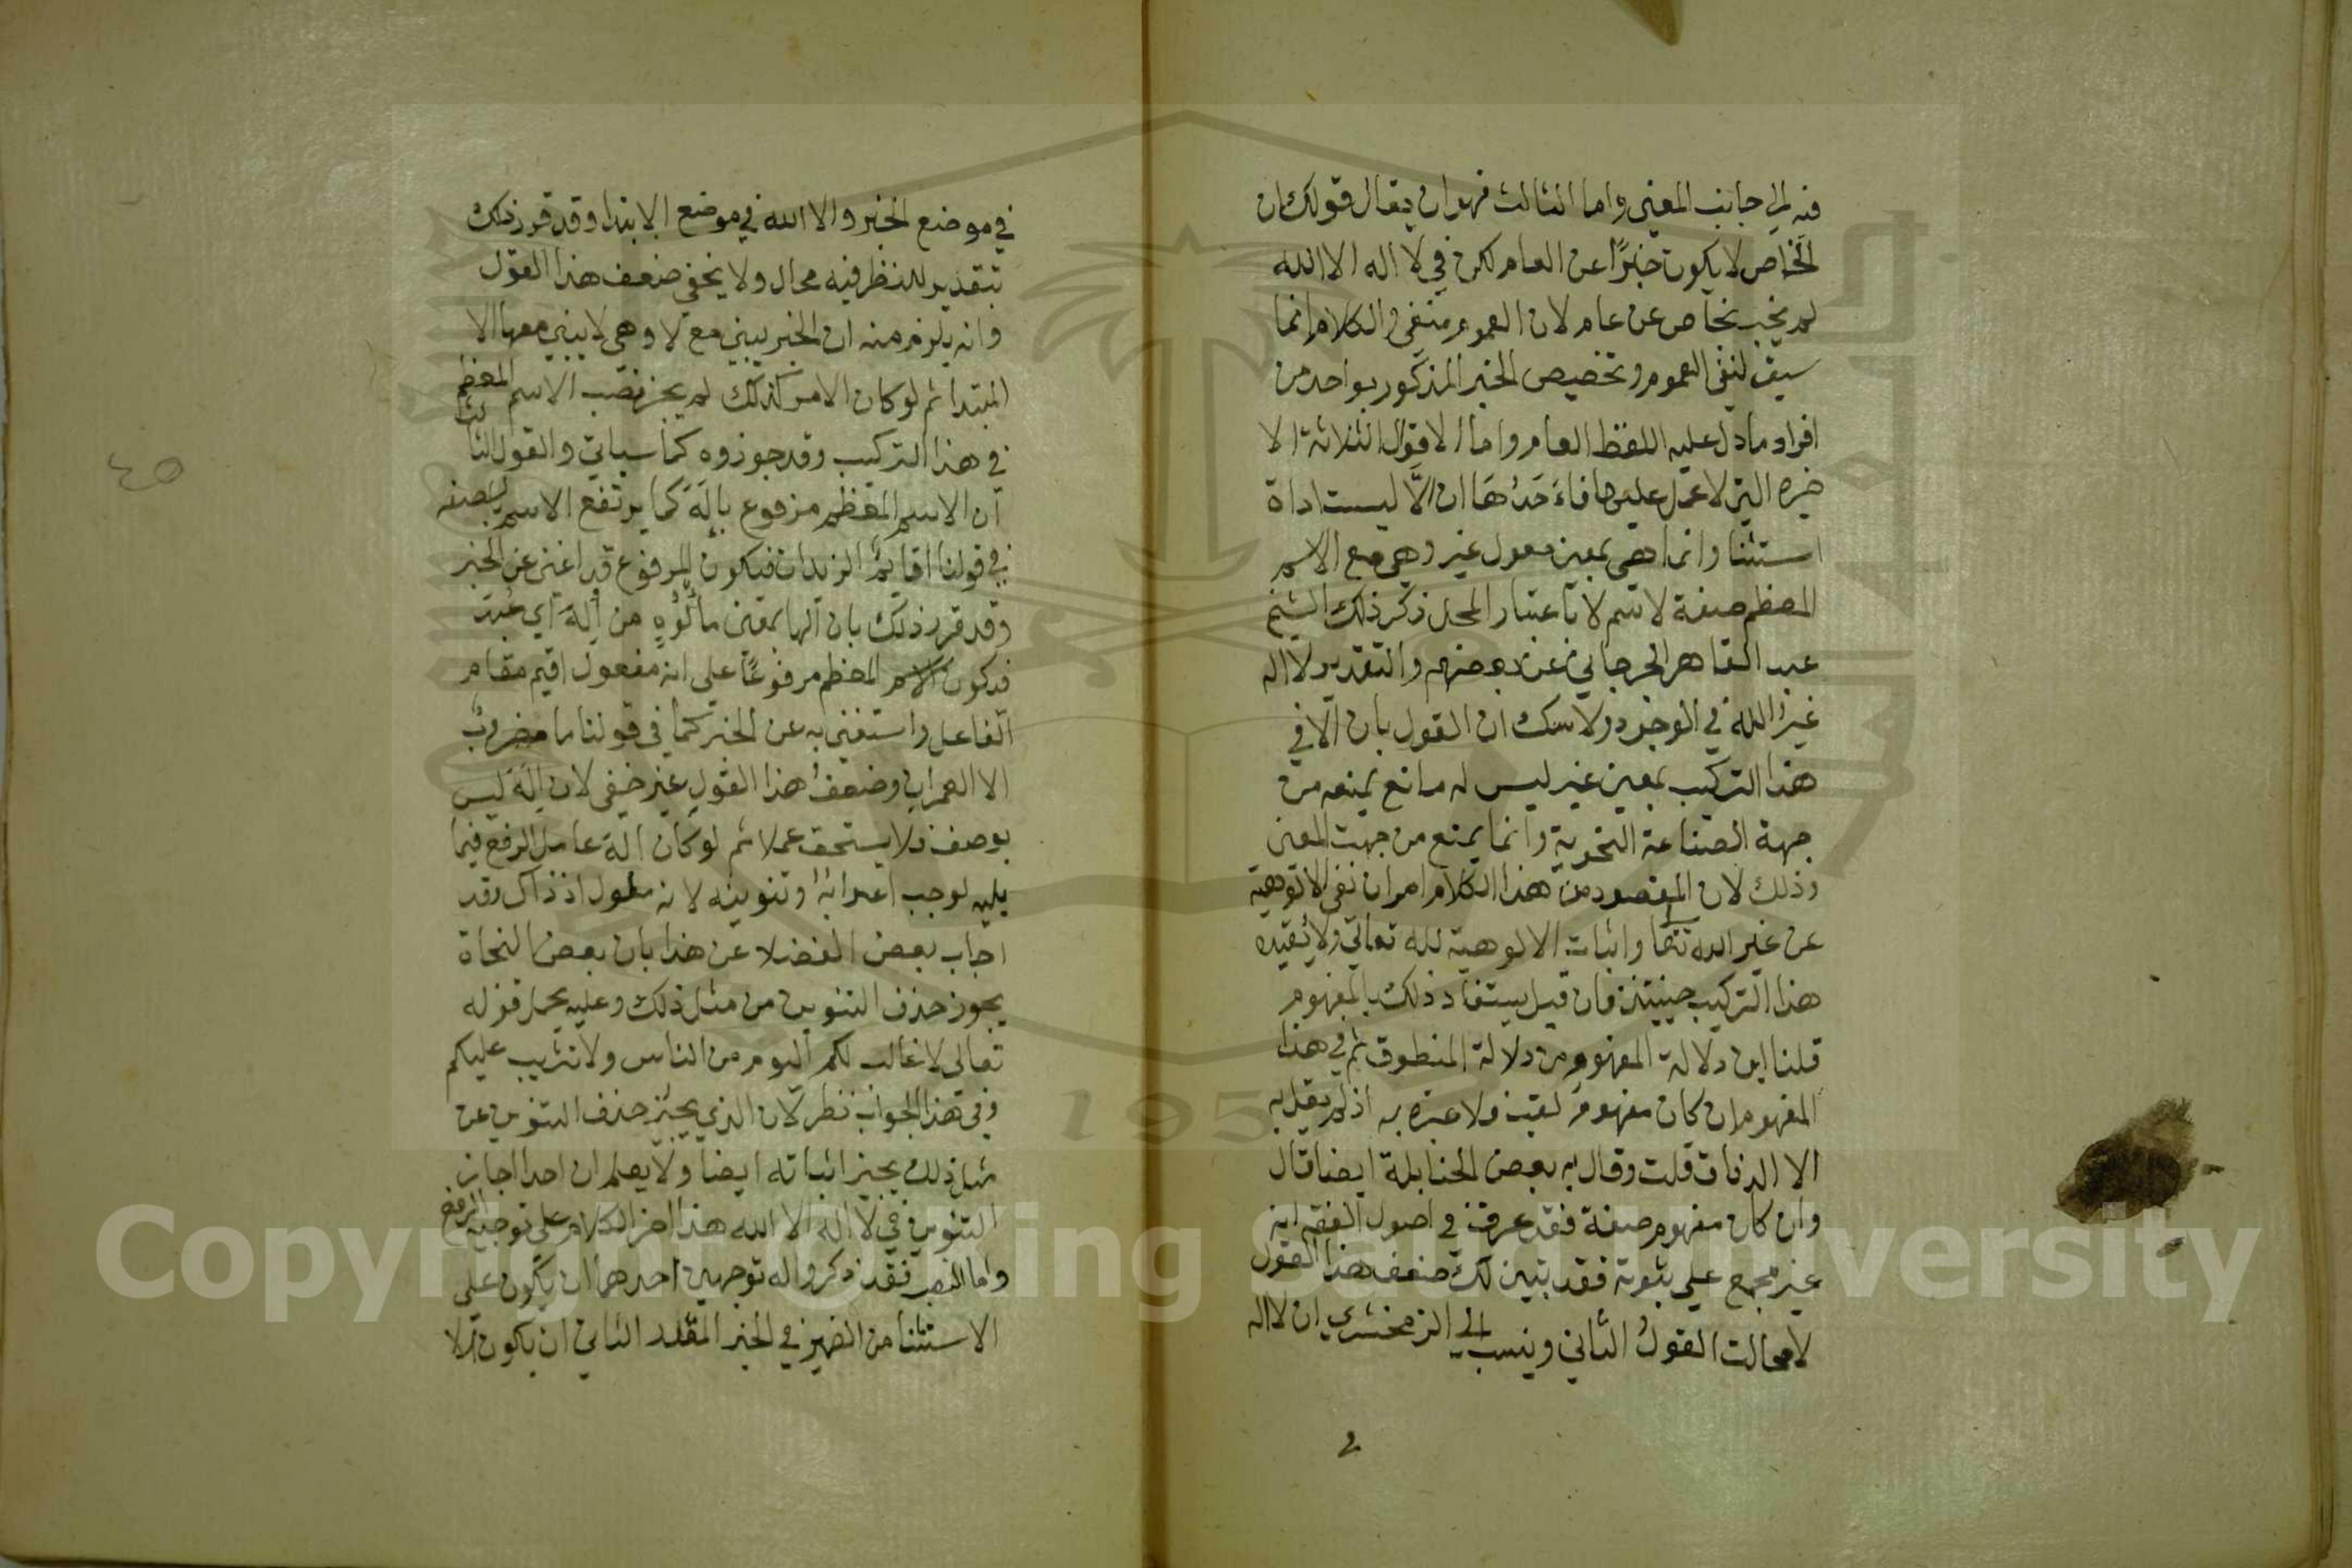 فيه الى جانب المعنى واما الثالث فهو ان يقال قولك ان
الخاص لا يكون خبرًا عن العام لكن في لا اله الا الله
لم يخبر بخاص عن عام لان العموم منفي والكلام انما
سيق لنفي العموم وتخصيص الخبر المذكور بواحد من
افراد ما دل عليه اللفظ العام واما الاقوال الثلاثة الا
خيره التي لا عمل عليها فاحدها ان الا ليست اداة
استثنا وانما هي بمعنى غير وهي مع الاسم
المعظم صفة لاسم لا باعتبار المحل ذكر ذلك الشيخ
عبد القاهر الجرجاني عن بعضهم والتقدير لا اله
غير الله في الوجود ولا شك ان القول بان الا في
هذا التركيب بمعنى غير ليس له مانع يمنعه من
جهة الصناعة النحوية وانما يمتنع من جهت المعنى
وذلك لان المقصود من هذا الكلام امران نفي الالوهية
عن غير الله تعا واثبات الالوهية لله تعالى ولا يفيده
هذا التركيب حينئذ فان قيل يستفاد ذلك بالمفهوم
قلنا اين دلالة المفهوم من دلالة المنطوق ثم في هذا
المفهوم ان كان مفهوم لقب فلا عبرة به اذ لم يقل به
الا الدقاق قلت وقال به بعض الحنابلة ايضا قال
وان كان مفهوم صفة فقد عرف في اصول الفقه انه
غير مجمع على ثبوته فقد تبين لك ضعف هذا القول
لا محالت القول الثاني وينسب الى الزمخشري ان لا اله
في موضع الخبر والا الله في موضع الابتدا وقد قرر ذلك
بتقدير للنظر فيه مجال ولا يخفى ضعف هذا القول
وانه يلزم منه ان الخبر يبنى مع لا وهي لا يبنى معها الا
المبتدا ثم لو كان الامر كذلك لم يجز نصب الاسم المعظم
في هذا التركيب وقد جوزوه كما سياتي والقول الثالث
ان الاسم المعظم مرفوع باله كما يرتفع الاسم بالصفه
في قولنا اقايم الزيدان فيكون المرفوع قد اغنى عن الخبر
وقد قرر ذلك بان الها بمعنى مألوه من أله اي عبد
فيكون الاسم المعظم مرفوعًا على انه مفعول اقيم مقام
الفاعل واستغنى به عن الخبر كما في قولنا ما مضروب
الا العمران وضعف هذا القول غير خفي لان اله ليس
بوصف فلا يستحق عملا ثم لو كان اله عامل الرفع فيما
يليه لوجب اعرابه وتنوينه لانه مطول اذ ذاك وقد
اجاب بعض الفضلا عن هذا بان بعض النحاة
يجوز حذف التنوين من مثل ذلك وعليه يحمل قوله
تعالى لا غالب لكم اليوم من الناس ولا تثريب عليكم
وفي هذا الجواب نظر لان الذي يجيز حذف التنوين عن
مثل ذلك يجيز اثباته ايضا ولا يعلم ان احدا اجاز
التنوين في لا اله الا الله هذا اخر الكلام على توجيه الرفع
واما النصب فقد ذكروا له توجيهين احدهما ان يكون على
الاستثنا من الضمير في الخبر المقدر الثاني ان يكون الا
٤٥
Copyright © King Saud University
195